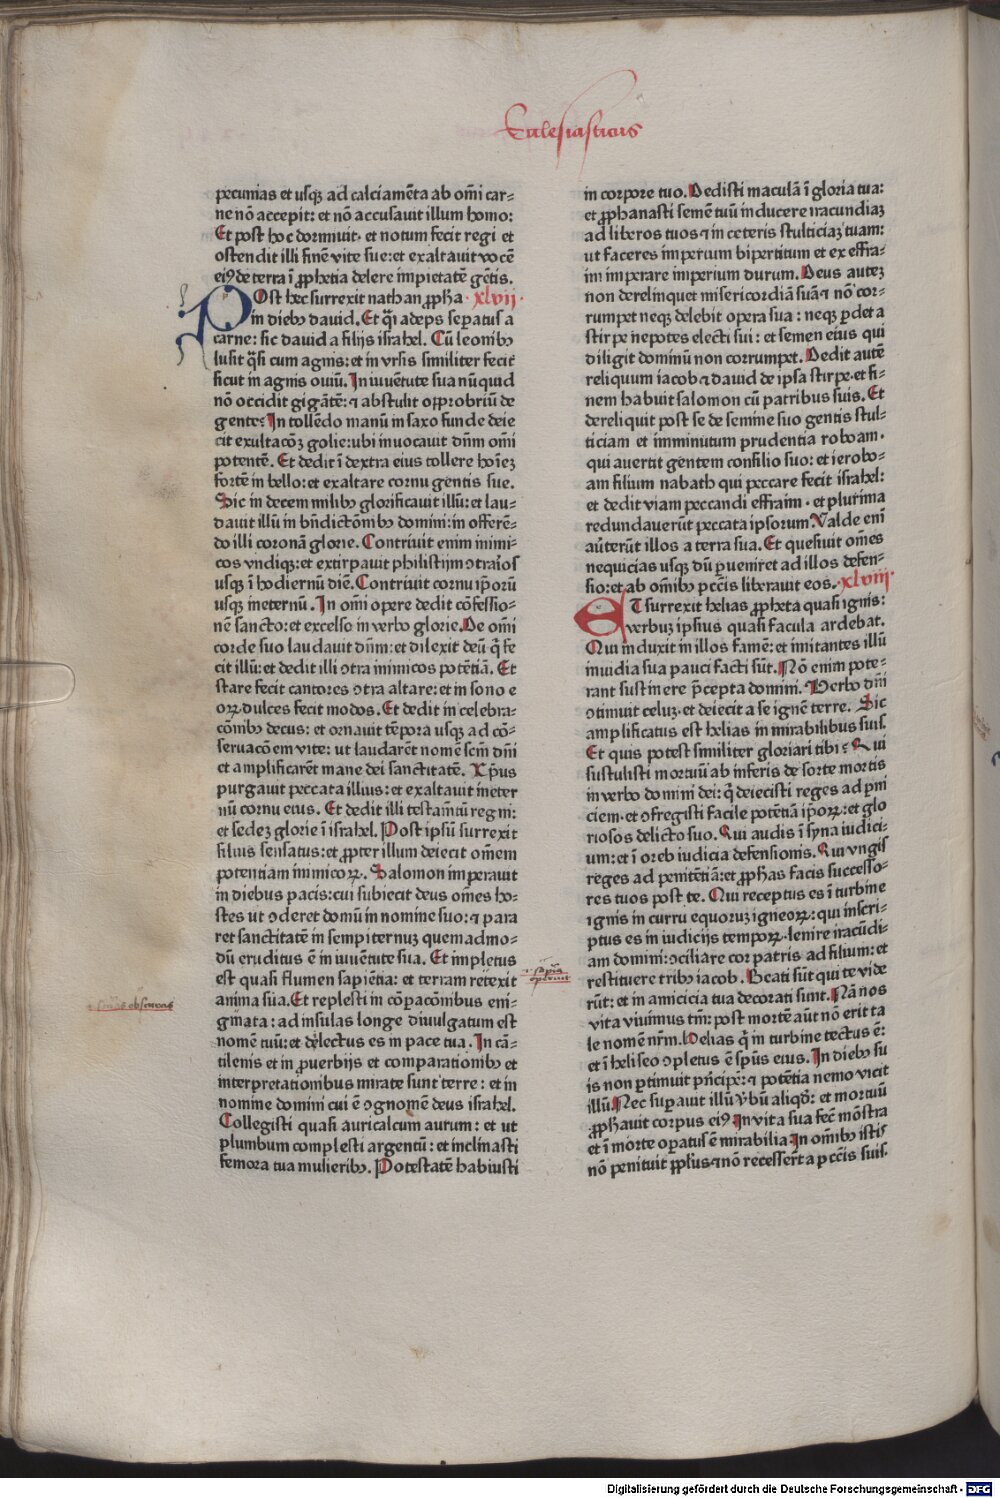 Ecclesiasticus
pecunias et usqȝ ad calciamēta ab om̄i car=
ne nō accepit: et nō accusauit illum homo:
Et post hoc dormiuit· et notum fecit regi et
ostendit illi finē vite sue: et exaltauit vocē
eiꝰ de terra ī ꝓphetia delere impietatē gētis.
POst hec surrexit nathan ꝓpha· xlvij·
in diebꝰ dauid. Et q̄i adeps sepatus a
carne: sic dauid a filijs israhel. Cū leonibꝰ
lusit q̄si cum agnis: et in vrsis similiter fecit
sicut in agnis ouiū. In iuuētute sua nūquid
nō occidit gigātē: ⁊ abstulit opprobriū de
gente? In tollēdo manū in saxo funde deie
cit exultacōȝ golie: ubi inuocauit dn̄m om̄i
potentē. Et dedit ī dextra eius tollere hoīeȝ
fortē in bello: et exaltare cornu gentis sue.
Sic in decem milibꝰ glorificauit illū: et lau=
dauit illū in bn̄dictōnibꝰ domini: in offerē=
do illi coronā glorie. Contriuit enim inimi=
cos vndiqȝ: et extirpauit philistijm ↄtrarios
usqȝ ī hodiernū diē. Contriuit cornu ip̄orū
usqȝ ineternū. In om̄i opere dedit cōfessio=
nē sancto: et excelso in verbo glorie. De om̄i
corde suo laudauit dn̄m: et dilexit deū q̄ fe
cit illū: et dedit illi ↄtra inimicos potētiā. Et
stare fecit cantores ↄtra altare: et in sono e
oꝝ dulces fecit modos. Et dedit in celebra=
cōibꝰ decus: et ornauit tēpora usqȝ ad cō=
seruacōem vite: ut laudarēt nomē scm̄ dn̄i
et amplificarēt mane dei sanctitatē. Xp̄us
purgauit peccata illius: et exaltauit ineter
nū cornu eius. Et dedit illi testamētū regni:
et sedeȝ glorie ī israhel. Post ipsū surrexit
filius sensatus: et ꝓpter illum deiecit om̄em
potentiam inimicoꝝ. Salomon imperauit
in diebus pacis: cui subiecit deus om̄es ho=
stes ut ↄderet domū in nomine suo: ⁊ para
ret sanctitatē in sempiternuȝ quemadmo=
dū eruditus ē in iuuētute sua. Et impletus
est quasi flumen sapiētia: et terram retexit
anima sua. Et replesti in cōpacōnibus eni=
gmata: ad insulas longe diuulgatum est
nomē tuū: et dilectus es in pace tua. In cā=
tilenis et in ꝓuerbijs et comparationibꝰ et
interpretationibus mirate sunt terre: et in
nomine domini cui ē ↄgnomē deus israhel.
Collegisti quasi auricalcum aurum: et ut
plumbum complesti argentū: et inclinasti
femora tua mulieribꝰ. Potestatē habiusti
in corpore tuo. Dedisti maculā ī gloria tua:
et ꝓphanasti semē tuū inducere iracundiaȝ
ad liberos tuos ⁊ in ceteris stulticiaȝ tuam:
ut faceres imperium bipertitum et ex effra=
im imperare imperium durum. Deus auteȝ
non derelinquet misericordiā suā ⁊ nō cor=
rumpet neqȝ delebit opera sua: neqȝ ꝑdet a
stirpe nepotes electi sui: et semen eius qui
diligit dominū non corrumpet. Dedit autē
reliquum iacob ⁊ dauid de ipsa stirpe· et fi=
nem habuit salomon cū patribus suis. Et
dereliquit post se de semine suo gentis stul=
ticiam et imminutum prudentia roboam·
qui auertit gentem consilio suo: et ierobo=
am filium nabath qui peccare fecit israhel:
et dedit viam peccandi effraim· et plurima
redundauerūt peccata ipsorum. Valde eni
au̇terūt illos a terra sua. Et quesiuit om̄es
nequicias usqȝ dū ꝑueniret ad illos defen=
sio: et ab om̄ibꝰ pccīs liberauit eos. xlviij·
ET surrexit helias ꝓpheta quasi ignis:
verbuȝ ipsius quasi facula ardebat.
Qui induxit in illos famē: et imitantes illū
inuidia sua pauci facti sūt. Nō enim pote=
rant sustinere p̄cepta domini. Verbo dn̄i
ↄtinuit celuȝ· et deiecit a se ignē terre. Sic
amplificatus est helias in mirabilibus suis.
Et quis potest similiter gloriari tibi? Qui
sustulisti mortuū ab inferis de sorte mortis
in verbo domini dei: q̄ deiecisti reges ad ꝑni
ciem· et ↄfregisti facile potētiā ip̄oꝝ: et glo
riosos de lecto suo. Qui audis ī syna iudici=
um: et ī oreb iudicia defensionis. Qui vngis
reges ad penitētiā: et ꝓphas facis successo=
res tuos post te. Qui receptus es ī turbine
ignis in curru equoruȝ igneoꝝ: qui inscri=
ptus es in iudicijs tempoꝝ· lenire iracūdi=
am domini: ↄciliare cor patris ad filium: et
restituere tribꝰ iacob. Beati sūt qui te vide
rūt: et in amicicia tua decorati sunt. Nā nos
vita viuimus tm̄: post mortē aūt nō erit ta
le nomē nr̄m. Helias q̄ in turbine tectus ē:
et ī heliseo ↄpletus ē sp̄us eius. In diebꝰ su
is non ꝑtimuit pn̄cipē: ⁊ potētia nemo vicit
illū. Nec suꝑauit illū v̄bū aliqd̄: et mortuū
ꝓphauit corpus eiꝰ. In vita sua fec̄ mōstra
et ī morte oꝑatus ē mirabilia. In om̄ibꝰ istis
nō penituit ppl̄us ⁊ nō recesserūt a pccīs suis.
Digitalisierung gefördert durch die Deutsche Forschungsgemeinschaft - DFG